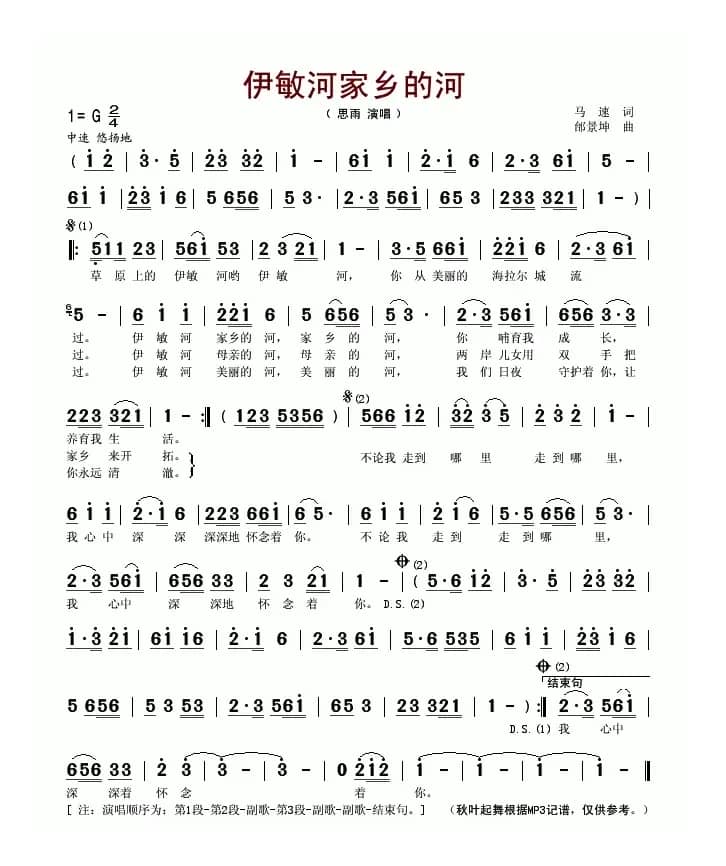 伊敏河家乡的河
1=G 2/4
（ 思雨 演唱 ）
马 速 词
邰景坤 曲
中速 悠扬地
( 1 2 | 3· 5 | 23 32 | 1 - | 61 1 | 2·1 6 | 2·3 61 | 5 - |
61 1 | 23 1 6 | 5 656 | 5 3· | 2·3 561 | 65 3 | 233 321 | 1 - ) |
(1)
‖: 511 23 | 561 53 | 2 3 21 | 1 - | 3·5 661 | 221 6 | 2·3 61 |
草 原 上的 伊敏 河哟 伊 敏 河， 你 从 美丽的 海拉尔 城 流
6 5 - | 6 1 1 | 221 6 | 5 656 | 5 3· | 2·3 561 | 2·3 565 |
过。 伊 敏 河 家乡的 河， 家 乡 的 河， 你 哺育我 成 长，
过。 伊 敏 河 母亲的 河， 母 亲 的 河， 两 岸 儿女用 双 手 把
过。 伊 敏 河 美丽的 河， 美 丽 的 河， 我 们 日夜 守护着 你，让
(2)
223 321 | 1 - :‖ ( 123 5356 ) | 566 12 | 32 3 5 | 2 3 2 | 1 - |
养育我 生 活。
家乡 来开 拓。 不论我 走到 哪 里 走 到 哪 里，
你永远 清 澈。
6 1 1 | 2·1 6 | 223 661 | 6 5· | 6 1 1 | 2 1 6 | 5·5 656 | 5 3· |
我 心 中 深 深 深深地 怀念着 你。 不 论 我 走 到 走 到 哪 里，
(2)
2·3 561 | 656 33 | 2 3 21 | 1 - | ( 5·6 12 | 3· 5 | 23 32 |
我 心中 深 深地 怀 念 着 你。 D.S.(2)
1·3 21 | 61 16 | 2·1 6 | 2·3 61 | 5·6 535 | 6 1 1 | 23 1 6 |
(2)
结束句
5 656 | 5 3 53 | 2·3 561 | 65 3 | 23 321 | 1 - ) :‖ 2·3 561 |
D.S.(1) 我 心中
656 33 | 2 3 | 3 - | 3 - | 0 212 | 1 - | 1 - | 1 - ‖
深 深着 怀 念 着 你。
[ 注：演唱顺序为：第1段-第2段-副歌-第3段-副歌-副歌-结束句。] （秋叶起舞根据MP3记谱，仅供参考。）